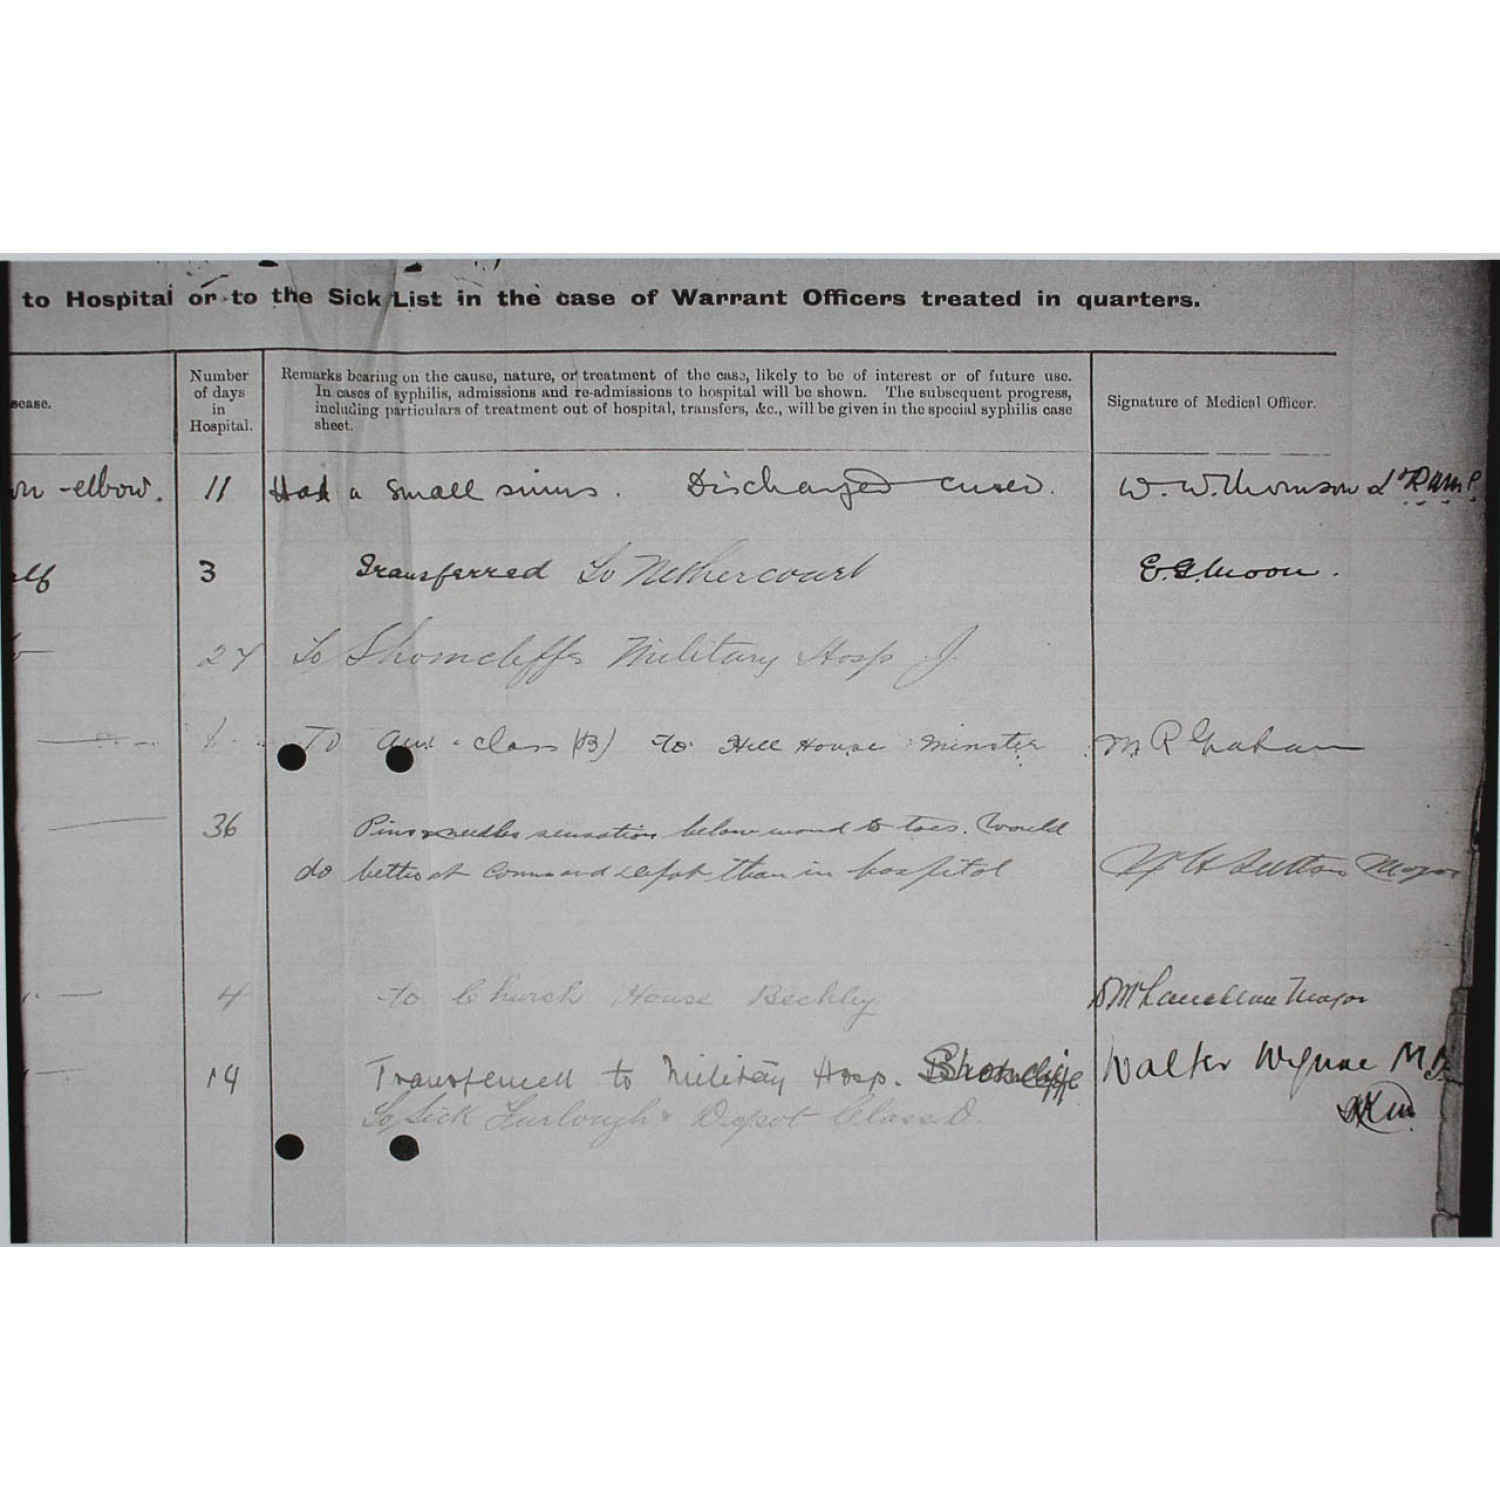 to Hospital or to the Sick List in the case of Warrant Officers treated in quarters.
sease.
Number
of days
in
Hospital.
Remarks bearing on the cause, nature, or treatment of the case, likely to be of interest or of future use.
In cases of syphilis, admissions and re-admissions to hospital will be shown. The subsequent progress,
including particulars of treatment out of hospital, transfers, &c., will be given in the special syphilis case
sheet.
Signature of Medical Officer.
on -elbow. 11 Had a small sinus. Discharged cured. W. W. Thomson Lt RAMC
alf 3 Transferred To Nethercourt E. G. Moon.
27 To Shorncliffe Military Hosp J.
1 To Aux. class (B) to Hill House Minster M R Graham
36 Pins & needles sensation below wound to toes. Would
do better at command depot than in hospital Sutton Major
4 to Church House Beckley Major
14 Transferred to Military Hosp. Shorncliffe Walter Wynne M
To Sick Furlough & Depot Class D.